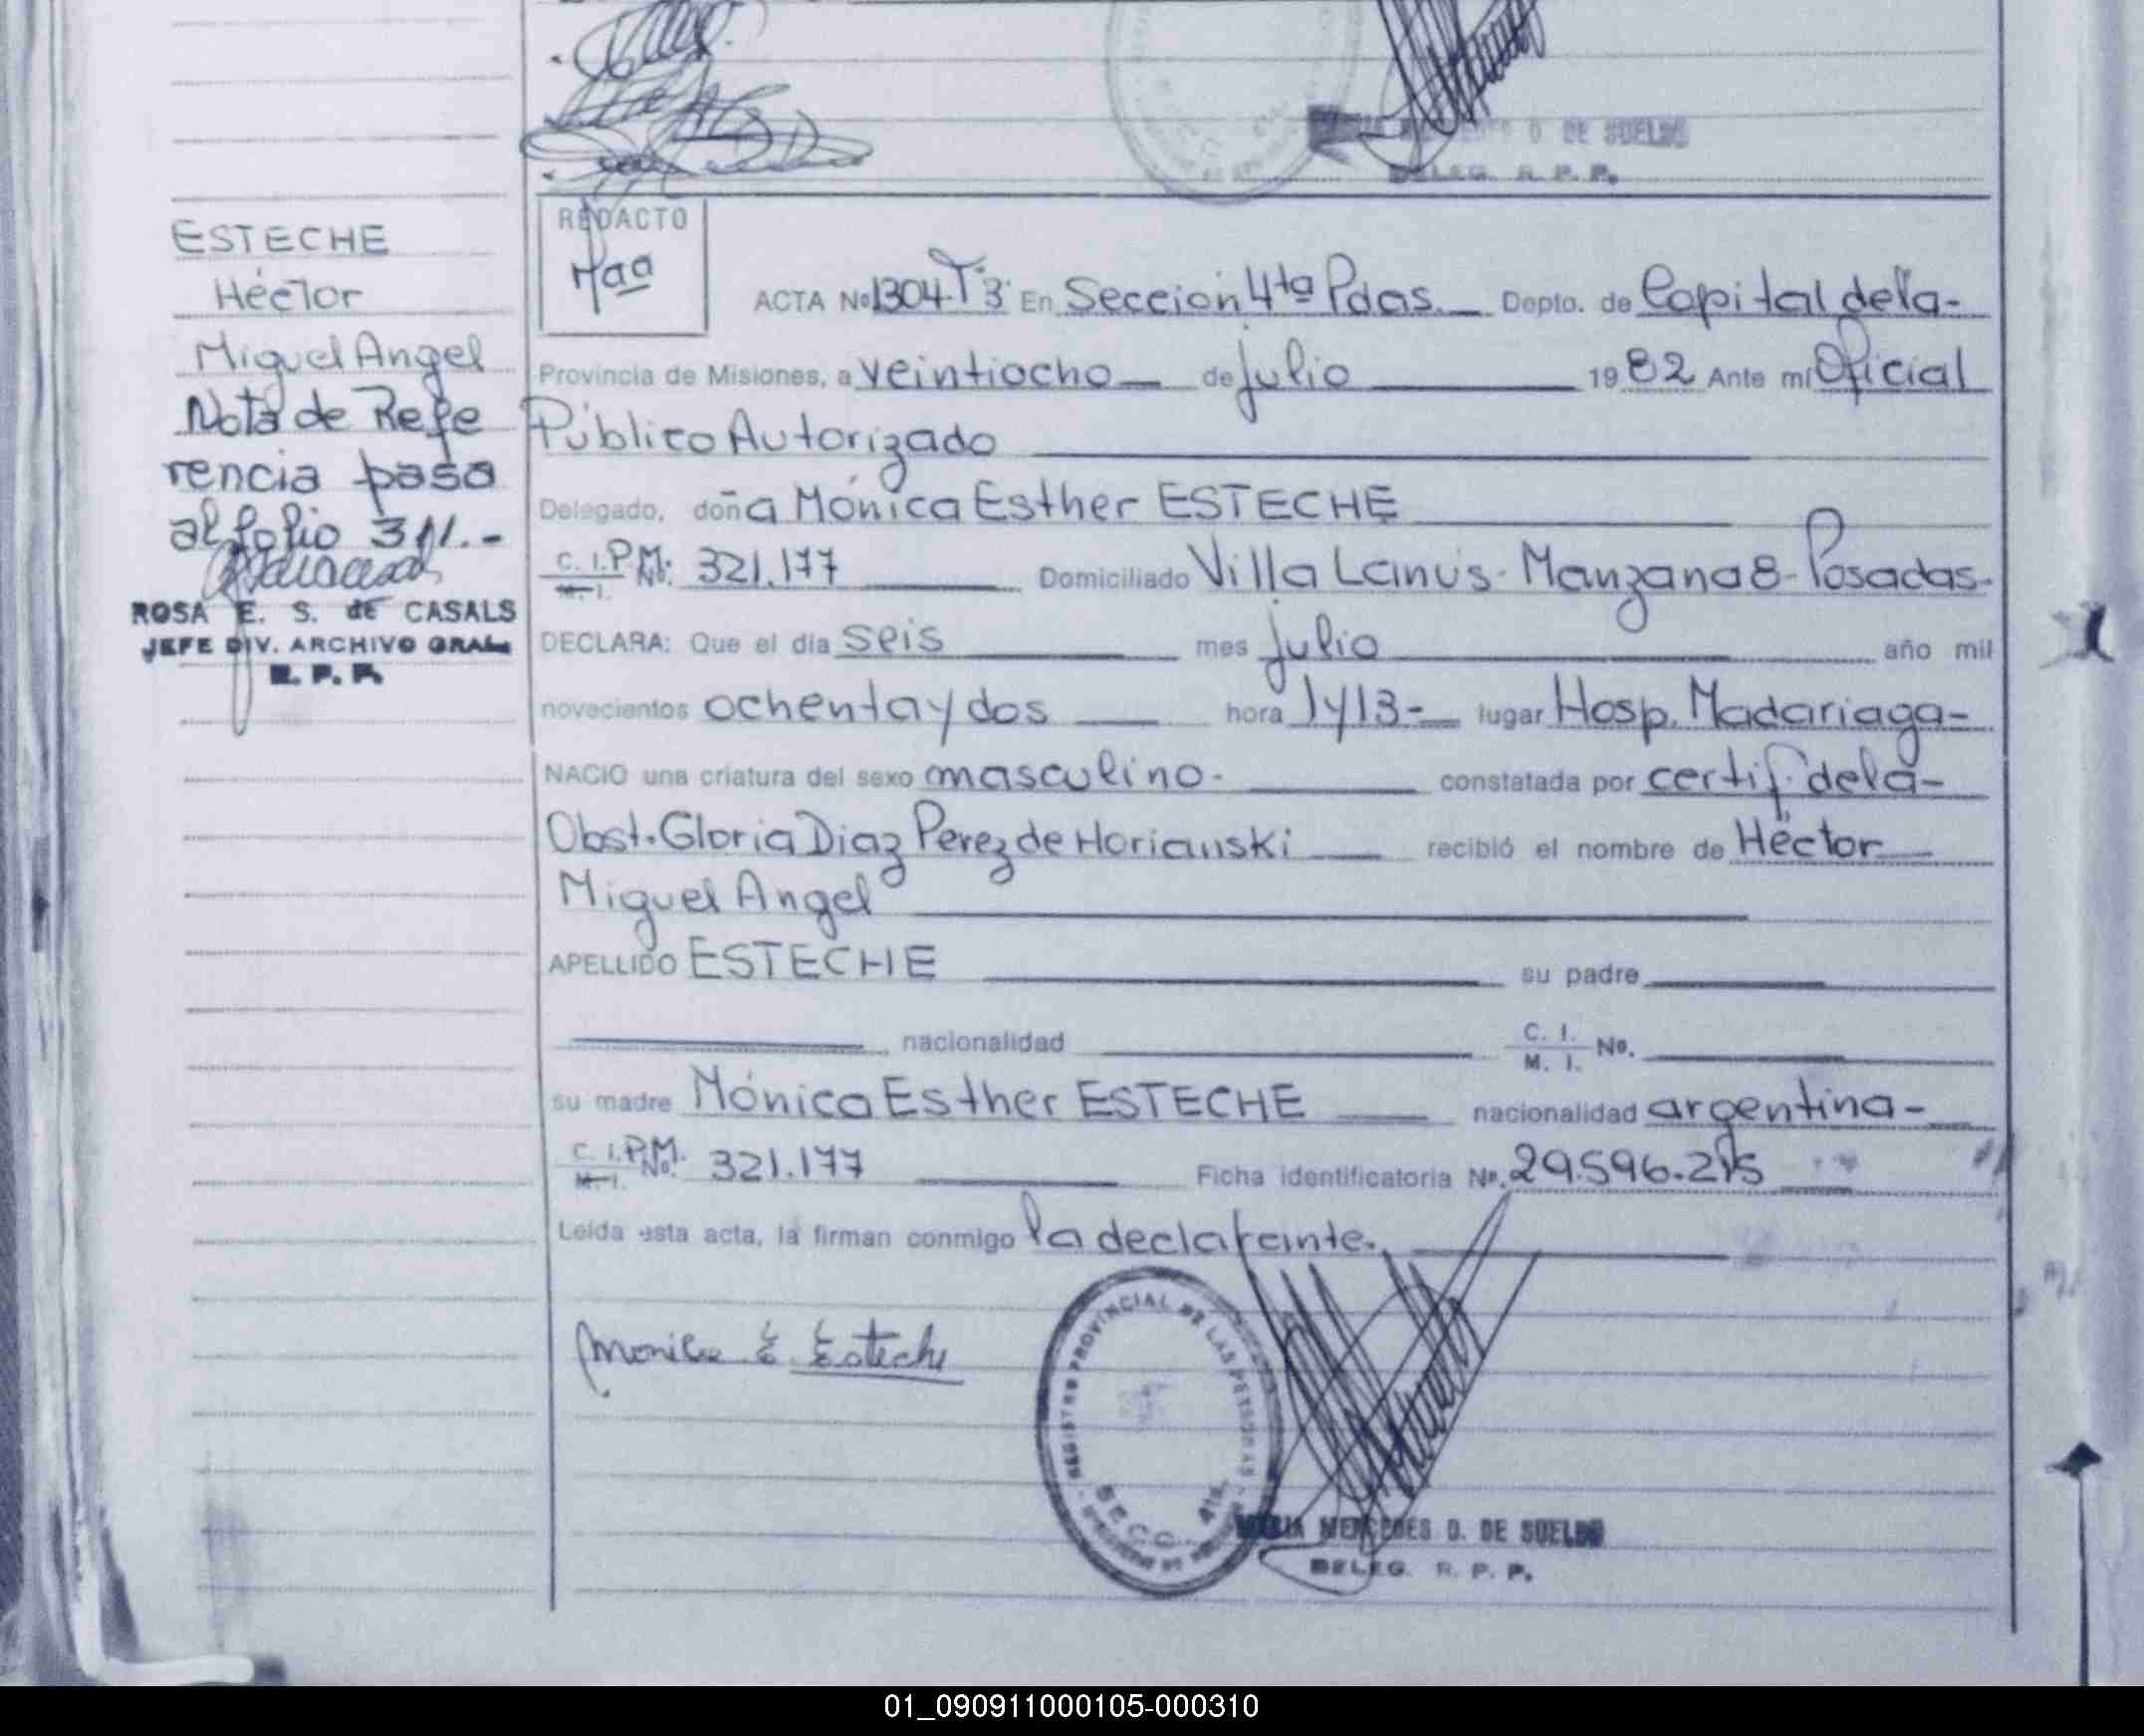 D. DE SUELDO
DELEG. R. P. P.
ESTECHE
Héctor
Miguel Angel
Nota de Refe
rencia pasa
al folio 311.-
ROSA E. S. de CASALS
JEFE DIV. ARCHIVO GRAL.
R. P. P.
REDACTO
ACTA No 1304 T°3° En Sección 4ta Pdas. Depto. de Capital de la-
Provincia de Misiones, a veintiocho de julio 1982 Ante mí Oficial
Público Autorizado
Delegado, doña Mónica Esther ESTECHE
C. I. P.M. No. 321.177 Domiciliado Villa Lanús- Manzana 8- Posadas-
M. I.
DECLARA: Que el día seis mes julio año mil
novecientos ochenta y dos hora 1 y 13- lugar Hosp. Madariaga-
NACIO una criatura del sexo masculino- constatada por certif. de la-
Obst. Gloria Diaz Perez de recibió el nombre de Héctor
Miguel Angel
APELLIDO ESTECHE su padre
nacionalidad C. I. No.
M. I.
su madre Mónica Esther ESTECHE nacionalidad argentina-
C. I. P.M. No. 321.177 Ficha identificatoria No. 29.596.215
M. I.
Leída esta acta, la firman conmigo la declarante.
Monica E. Esteche
REGISTRO PROVINCIAL DE LAS PERSONAS
SECC. 4ta.
MARIA MERCEDES D. DE SUELDO
DELEG. R. P. P.
01_090911000105-000310